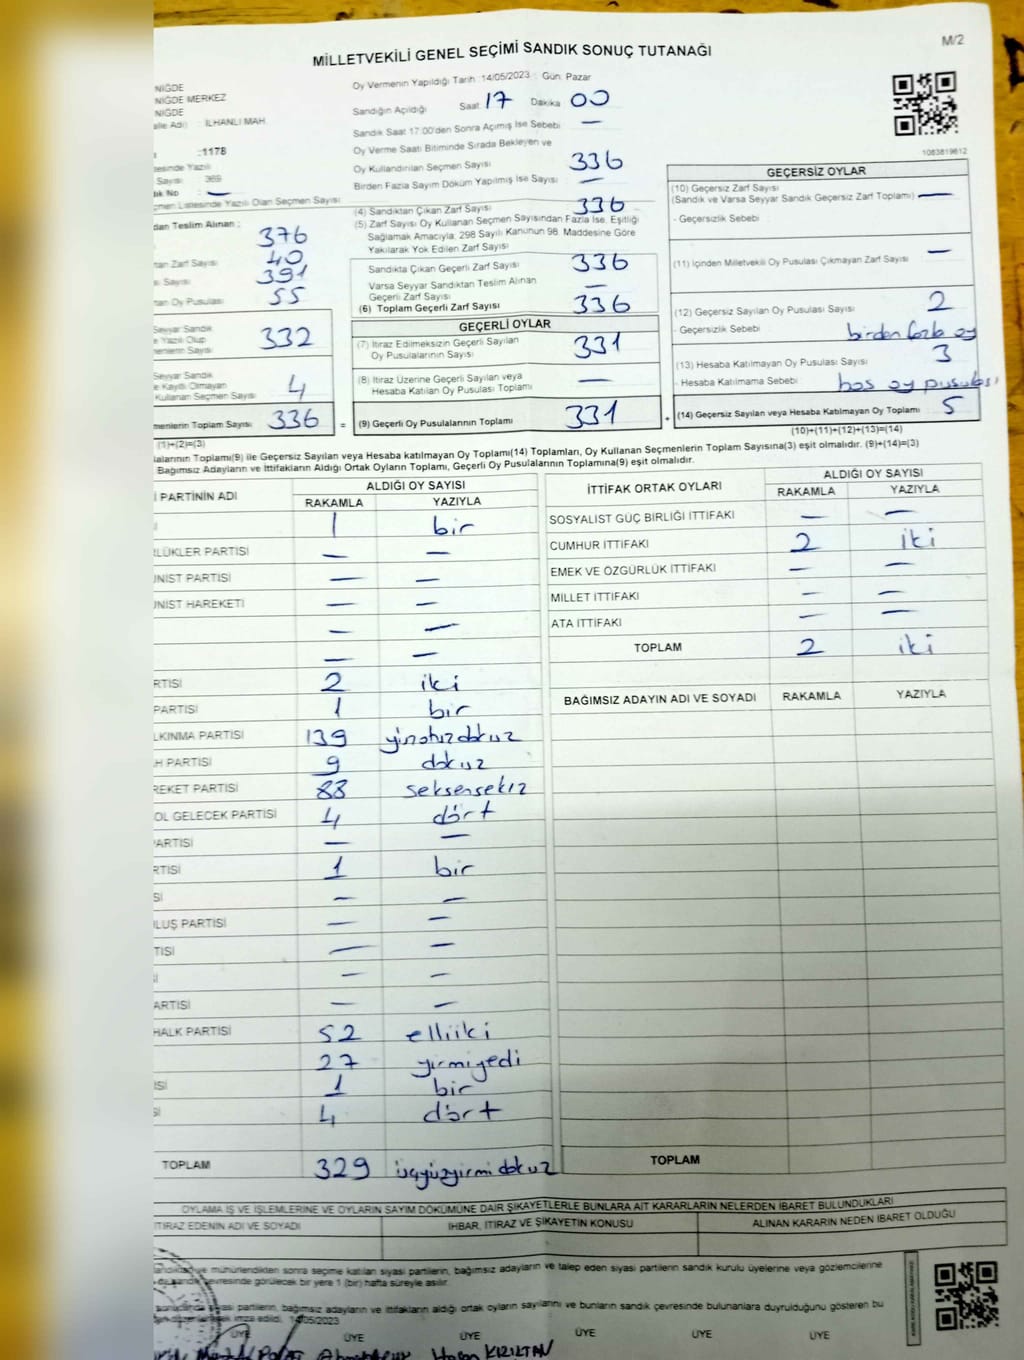 M/2
MİLLETVEKİLİ GENEL SEÇİMİ SANDIK SONUÇ TUTANAĞI
NİĞDE
NİĞDE MERKEZ
NİĞDE
alle Adı : İLHANLI MAH.
:1178
tesinde Yazılı
Sayısı : 369
ık No : —
çmen Listesinde Yazılı Olan Seçmen Sayısı
Oy Vermenin Yapıldığı Tarih :14/05/2023 : Gün: Pazar
Sandığın Açıldığı Saat 17 Dakika 00
Sandık Saat 17:00'den Sonra Açılmış İse Sebebi —
Oy Verme Saati Bitiminde Sırada Bekleyen ve
Oy Kullandırılan Seçmen Sayısı 336
Birden Fazla Sayım Döküm Yapılmış İse Sayısı —
1083819612
dan Teslim Alınan :
376
tan Zarf Sayısı 40
ı Sayısı : 391
tan Oy Pusulası 55
Seyyar Sandık
e Yazılı Olup
menlerin Sayısı 332
Seyyar Sandık
e Kayıtlı Olmayan
Kullanan Seçmen Sayısı 4
menlerin Toplam Sayısı 336 =
(1)+(2)=(3)
(4) Sandıktan Çıkan Zarf Sayısı 336
(5) Zarf Sayısı Oy Kullanan Seçmen Sayısından Fazla İse, Eşitliği
Sağlamak Amacıyla, 298 Sayılı Kanunun 98. Maddesine Göre
Yakılarak Yok Edilen Zarf Sayısı
Sandıkta Çıkan Geçerli Zarf Sayısı 336
Varsa Seyyar Sandıktan Teslim Alınan
Geçerli Zarf Sayısı —
(6) Toplam Geçerli Zarf Sayısı 336
GEÇERLİ OYLAR
(7) İtiraz Edilmeksizin Geçerli Sayılan
Oy Pusulalarının Sayısı 331
(8) İtiraz Üzerine Geçerli Sayılan veya
Hesaba Katılan Oy Pusulası Toplamı —
(9) Geçerli Oy Pusulalarının Toplamı 331 +
GEÇERSİZ OYLAR
(10) Geçersiz Zarf Sayısı
(Sandık ve Varsa Seyyar Sandık Geçersiz Zarf Toplamı) —
- Geçersizlik Sebebi
(11) İçinden Milletvekili Oy Pusulası Çıkmayan Zarf Sayısı —
(12) Geçersiz Sayılan Oy Pusulası Sayısı 2
- Geçersizlik Sebebi birden fazla oy
(13) Hesaba Katılmayan Oy Pusulası Sayısı 3
- Hesaba Katılmama Sebebi boş oy pusulası
(14) Geçersiz Sayılan veya Hesaba Katılmayan Oy Toplamı 5
(10)+(11)+(12)+(13)=(14)
lalarının Toplamı(9) ile Geçersiz Sayılan veya Hesaba katılmayan Oy Toplamı(14) Toplamları, Oy Kullanan Seçmenlerin Toplam Sayısına(3) eşit olmalıdır. (9)+(14)=(3)
Bağımsız Adayların ve İttifakların Aldığı Ortak Oyların Toplamı, Geçerli Oy Pusulalarının Toplamına(9) eşit olmalıdır.
İ PARTİNİN ADI ALDIĞI OY SAYISI
RAKAMLA YAZIYLA
İ 1 bir
RLÜKLER PARTİSİ — —
ÜNİST PARTİSİ — —
ÜNİST HAREKETİ — —
— —
— —
RTİSİ 2 iki
PARTİSİ 1 bir
LKINMA PARTİSİ 139 yüzotuzdokuz
H PARTİSİ 9 dokuz
REKET PARTİSİ 88 seksensekiz
OL GELECEK PARTİSİ 4 dört
PARTİSİ — —
RTİSİ 1 bir
Sİ — —
ULUŞ PARTİSİ — —
TİSİ — —
İ — —
ARTİSİ — —
HALK PARTİSİ 52 elliiki
27 yirmiyedi
İSİ 1 bir
Sİ 4 dört
TOPLAM 329 üçyüzyirmidokuz
İTTİFAK ORTAK OYLARI ALDIĞI OY SAYISI
RAKAMLA YAZIYLA
SOSYALİST GÜÇ BİRLİĞİ İTTİFAKI — —
CUMHUR İTTİFAKI 2 iki
EMEK VE ÖZGÜRLÜK İTTİFAKI — —
MİLLET İTTİFAKI — —
ATA İTTİFAKI — —
TOPLAM 2 iki
BAĞIMSIZ ADAYIN ADI VE SOYADI RAKAMLA YAZIYLA
TOPLAM
OYLAMA İŞ VE İŞLEMLERİNE VE OYLARIN SAYIM DÖKÜMÜNE DAİR ŞİKAYETLERLE BUNLARA AİT KARARLARIN NELERDEN İBARET BULUNDUKLARI
İTİRAZ EDENİN ADI VE SOYADI İHBAR, İTİRAZ VE ŞİKAYETİN KONUSU ALINAN KARARIN NEDEN İBARET OLDUĞU
ve mühürlendikten sonra seçime katılan siyasi partilerin, bağımsız adayların ve talep eden siyasi partilerin sandık kurulu üyelerine veya gözlemcilerine
çevresinde görülecek bir yere 1 (bir) hafta süreyle asılır.
siyasi partilerin, bağımsız adayların ve ittifakların aldığı ortak oyların sayılarını ve bunların sandık çevresinde bulunanlara duyurulduğunu gösteren bu
imza edildi. 14/05/2023
ÜYE ÜYE ÜYE ÜYE ÜYE ÜYE
Hasan KIZILTAN